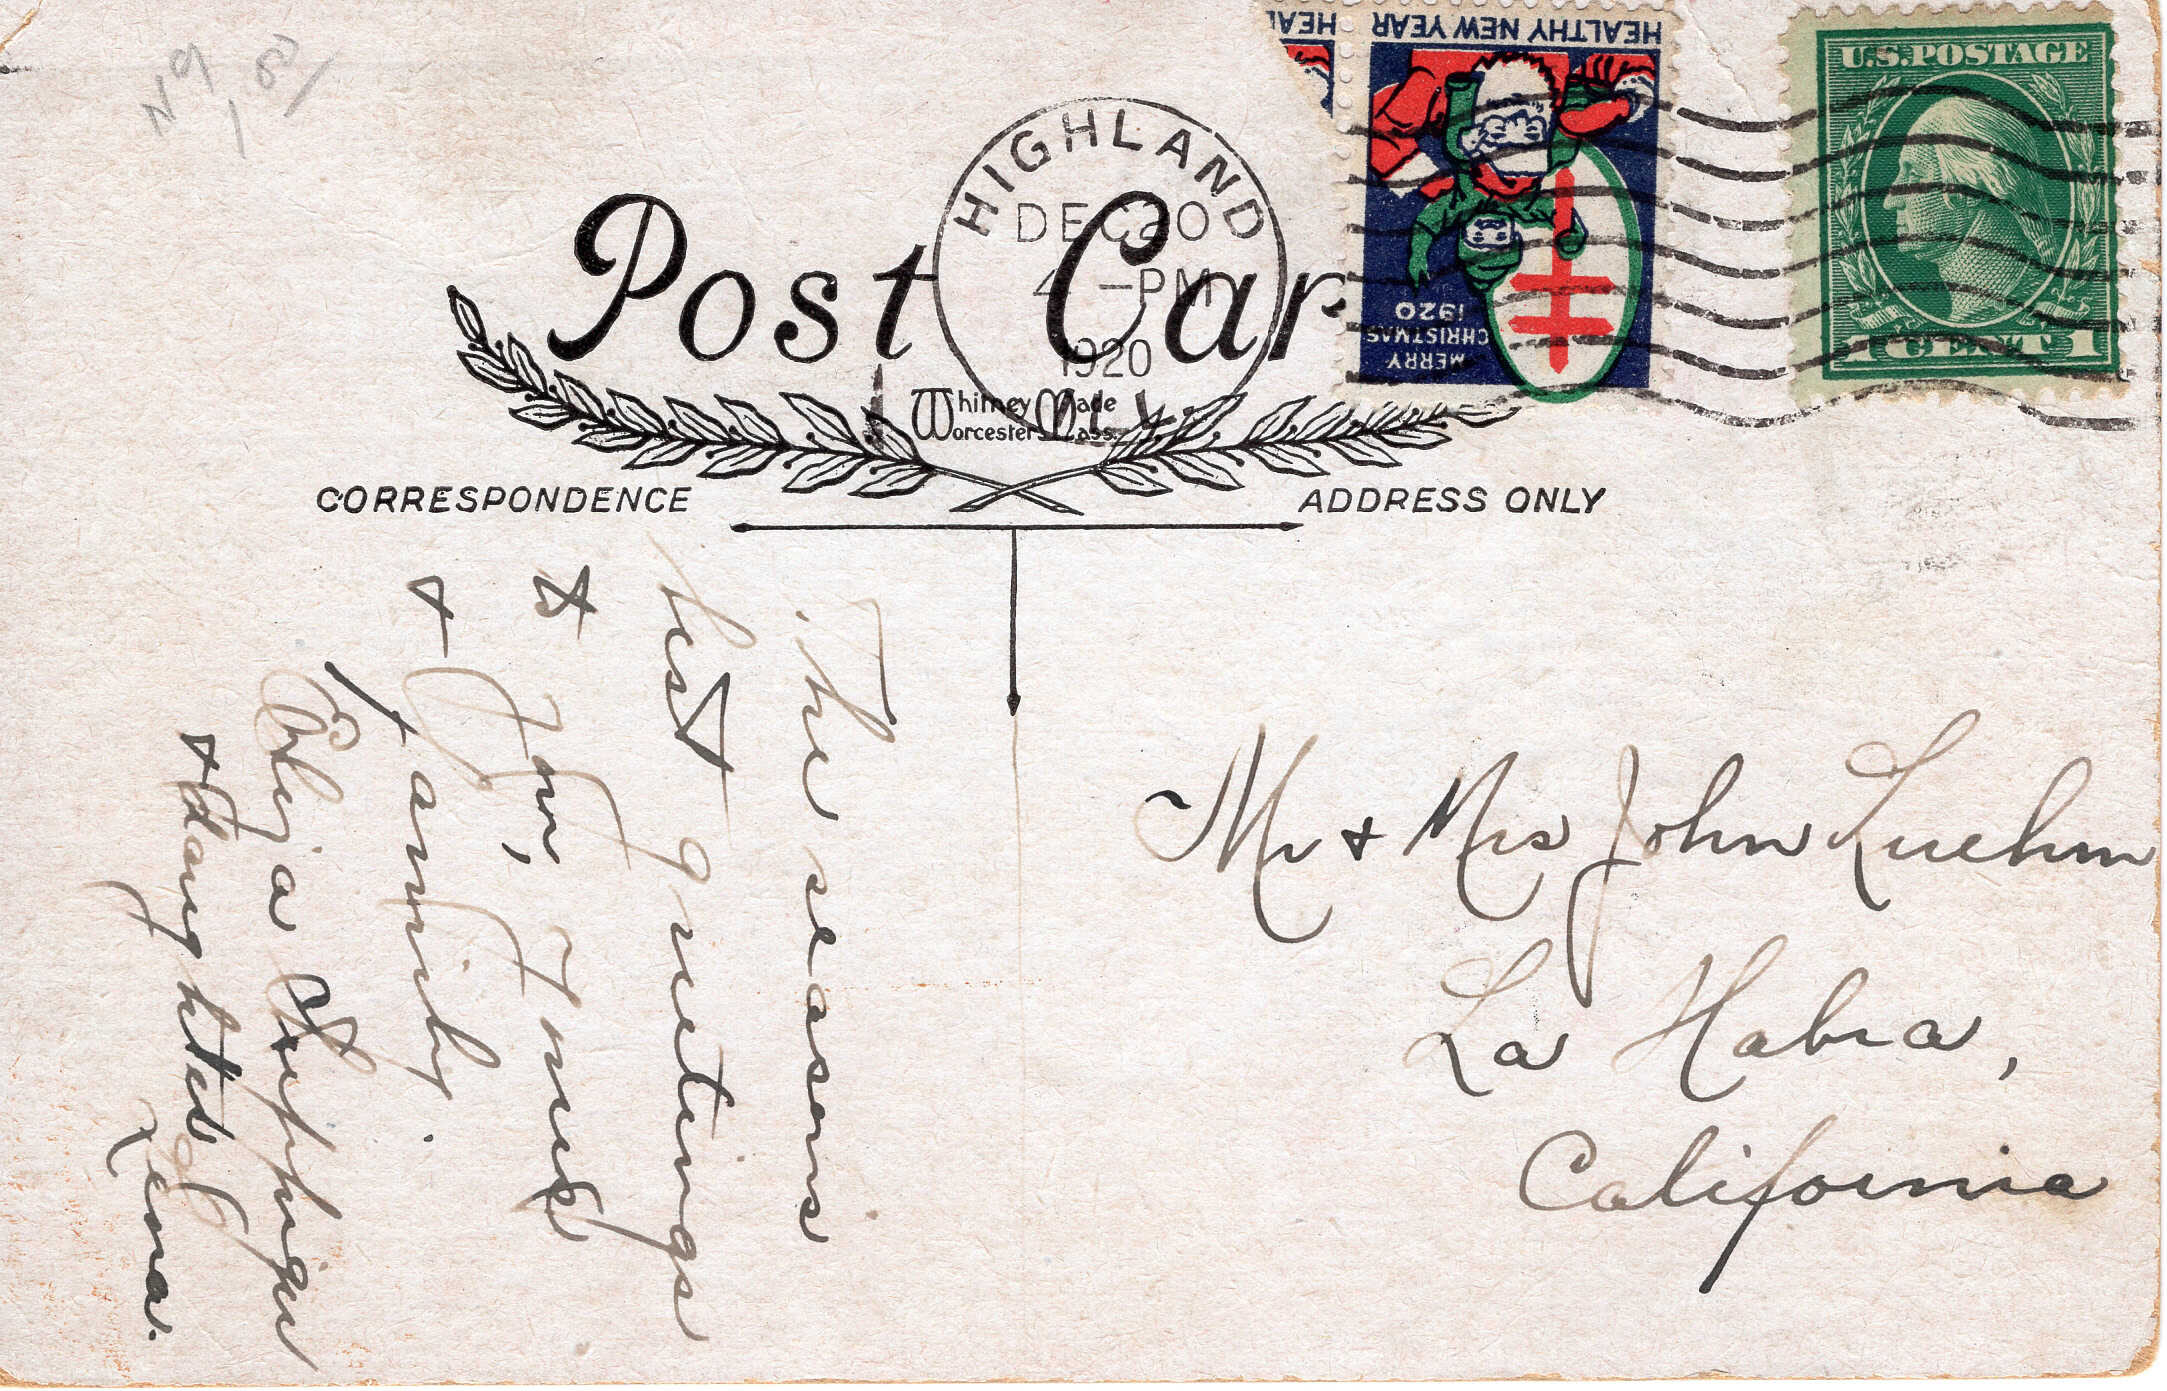 N9
1 50/
HEAL
HEALTHY NEW YEAR
MERRY
CHRISTMAS
1920
U.S. POSTAGE
1 CENT 1
HIGHLAND
DEC 20
4 -PM
1920
ILL.
Post Car
Whitney Made
Worcester Mass.
CORRESPONDENCE
ADDRESS ONLY
The seasons
best greetings
to you, Fred
& family.
Eliza
& daughter
Lena.
Mr & Mrs John Luehm
La Habra,
California